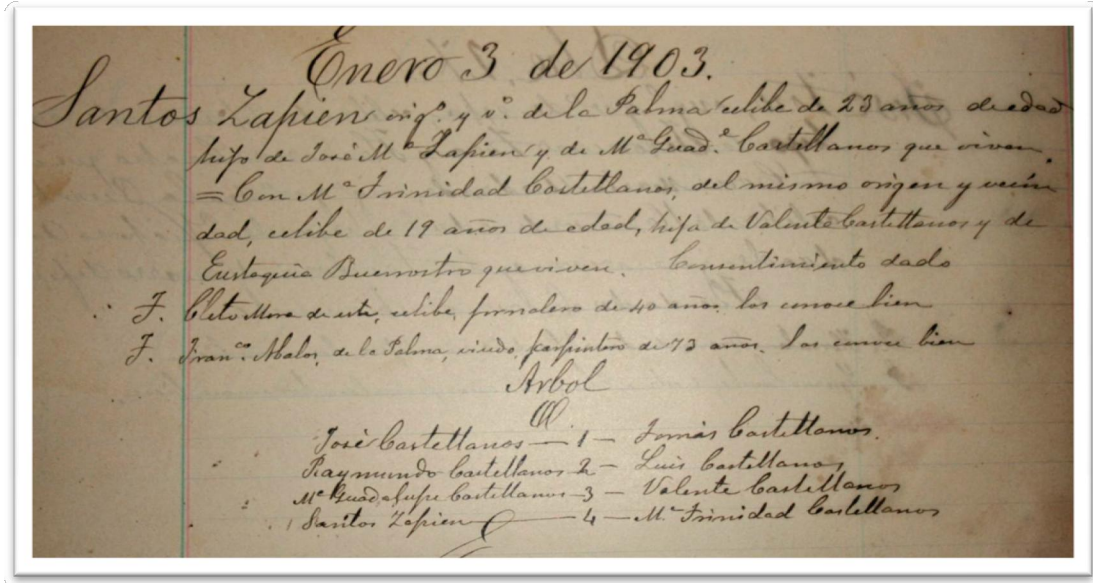 Enero 3 de 1903.
Santos Zapien orig.º y vº. de la Palma célibe de 23 años de edad
hijo de José Mª Zapien y de Mª Guad.e Castellanos que viven.
= Con Mª Trinidad Castellanos, del mismo origen y vecin
dad, célibe de 19 años de edad, hija de Valente Castellanos y de
Eustaquia Buenrostro que viven. Consentimiento dado
T. Cleto Mora de esta, célibe, jornalero de 40 años, los conoce bien
T. Fran.co Abalos, de la Palma, viudo, carpintero de 73 años. los conoce bien
Arbol
José Castellanos — 1 — Tomás Castellanos.
Raymundo Castellanos 2 — Luis Castellanos
Mª Guadalupe Castellanos — 3 — Valente Castellanos
Santos Zapien — 4 — Mª Trinidad Castellanos